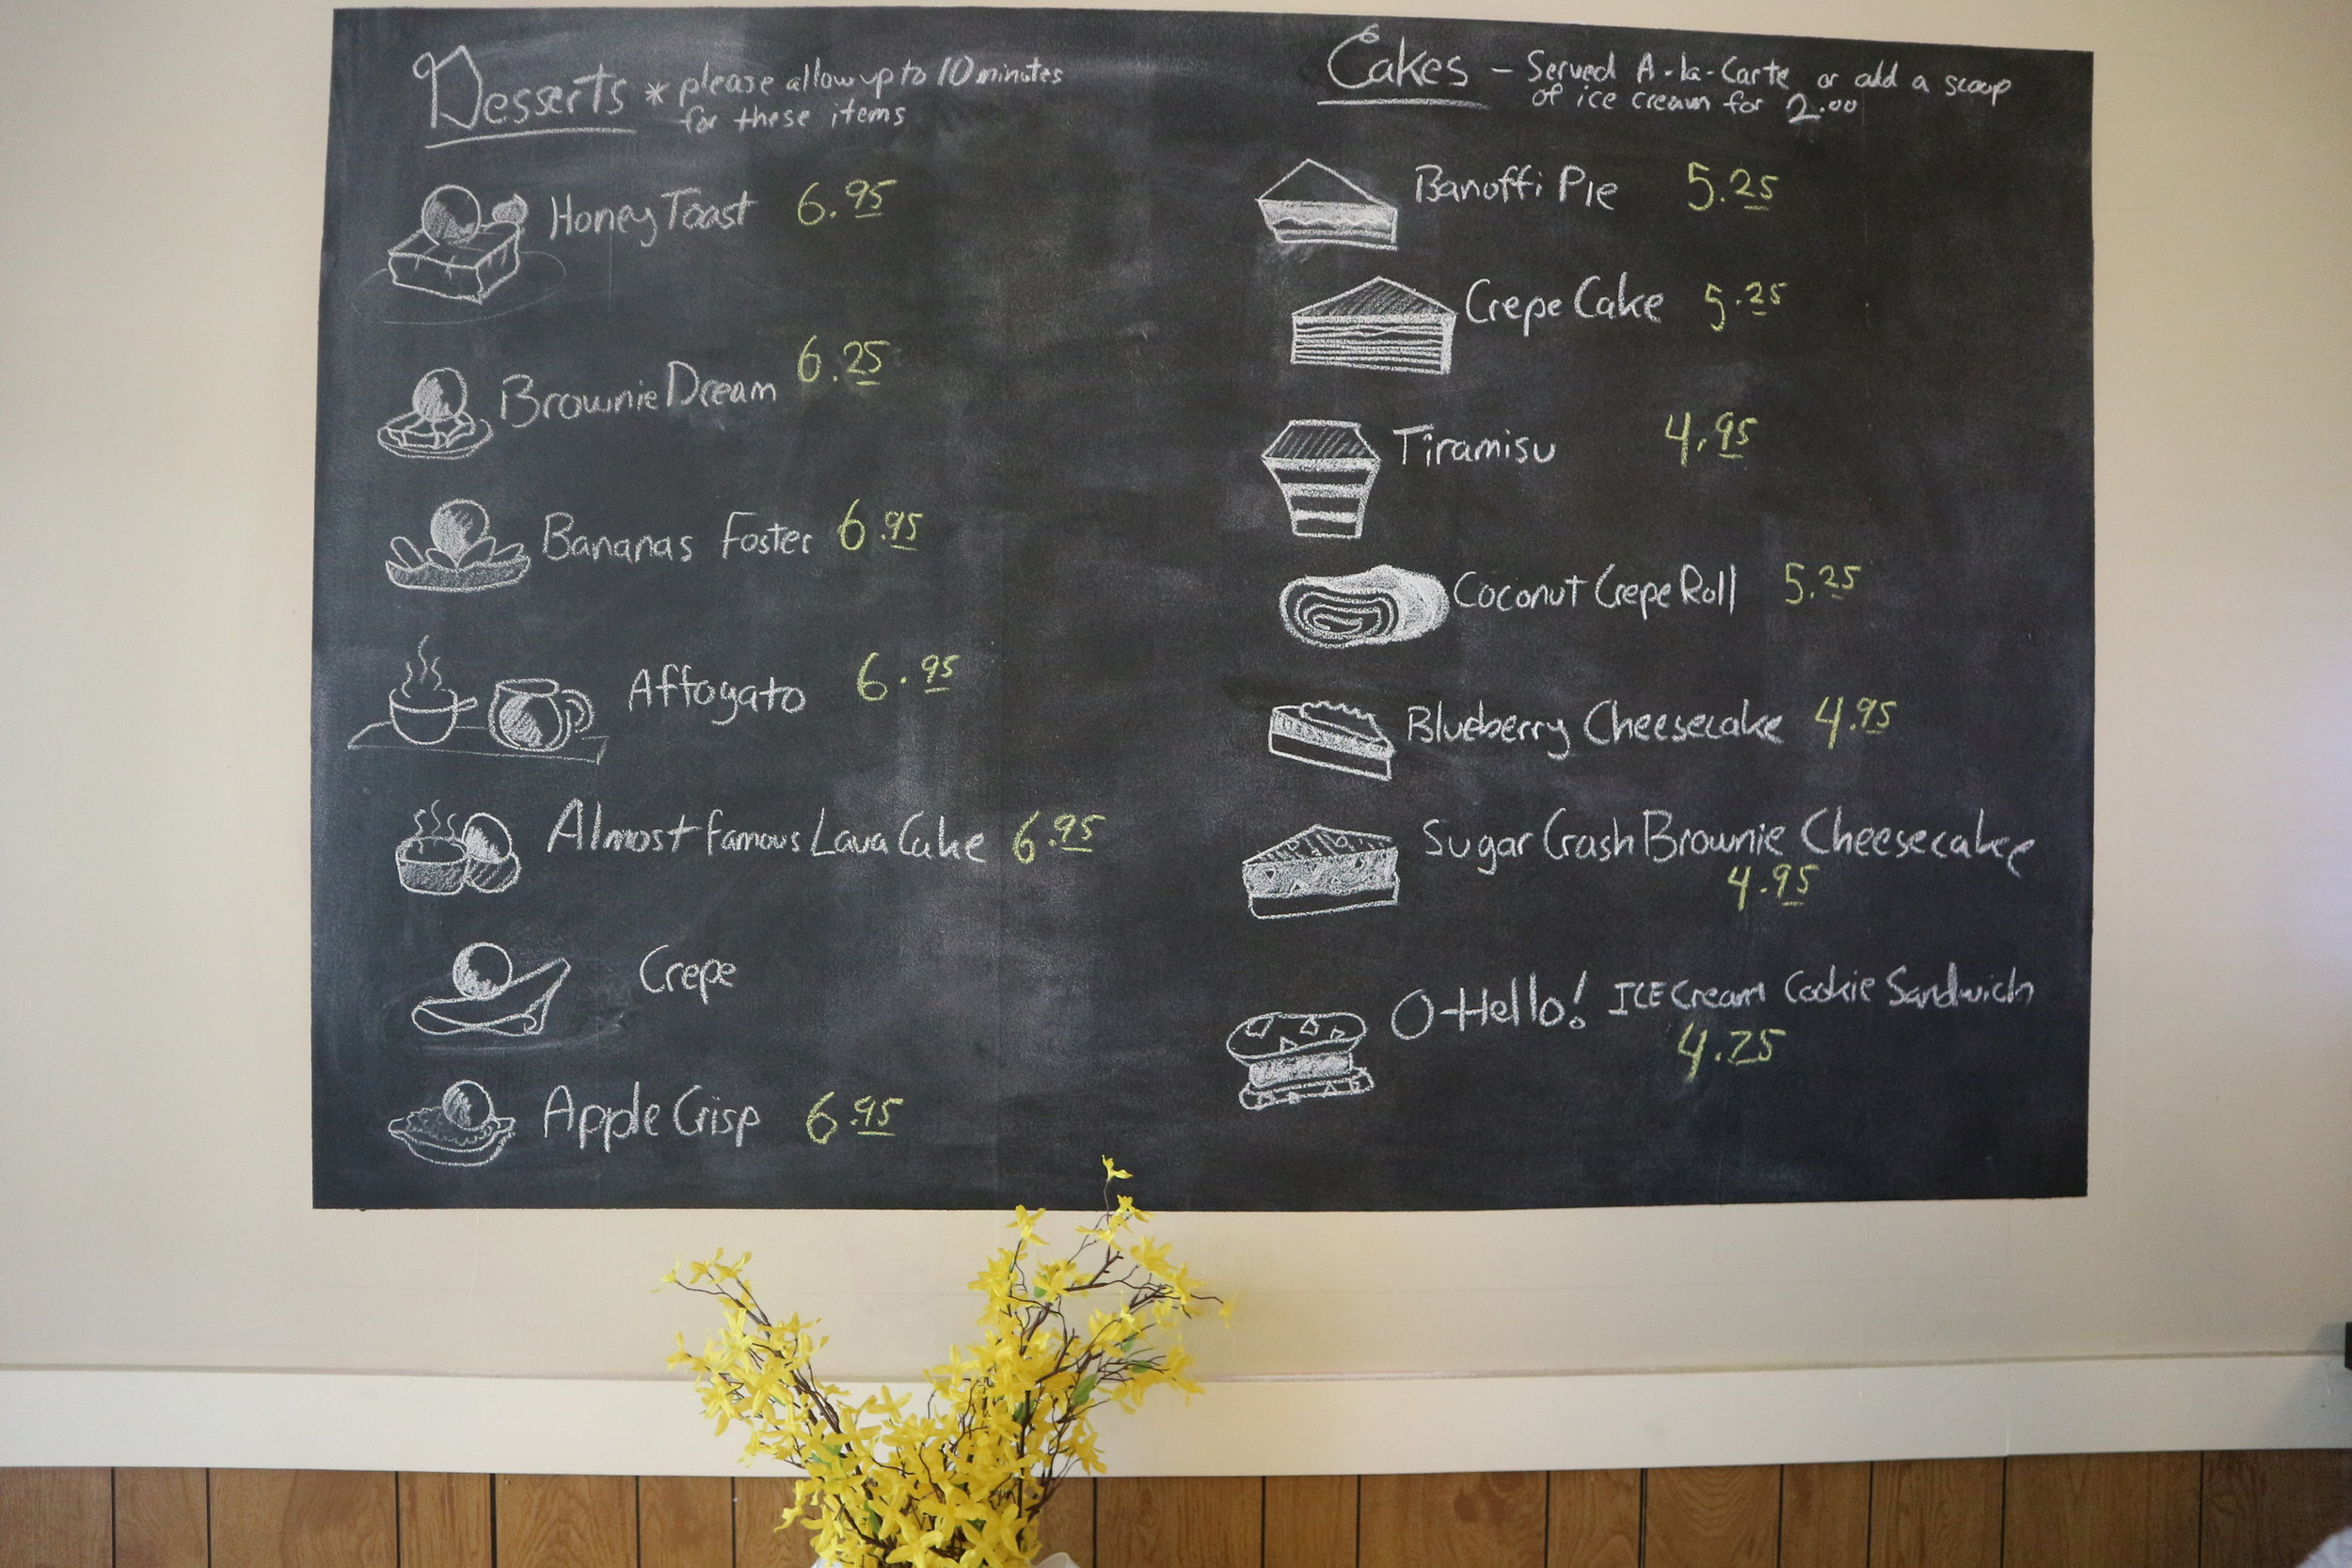 Desserts * please allow up to 10 minutes
for these items
Honey Toast 6.95
Brownie Dream 6.25
Bananas Foster 6.95
Affogato 6.95
Almost famous Lava Cake 6.95
Crepe
Apple Crisp 6.95
Cakes - Served A-la-Carte or add a scoop
of ice cream for 2.00
Banoffi Pie 5.25
Crepe Cake 5.25
Tiramisu 4.95
Coconut Crepe Roll 5.25
Blueberry Cheesecake 4.95
Sugar Crash Brownie Cheesecake
4.95
O-Hello! ICE Cream Cookie Sandwich
4.25